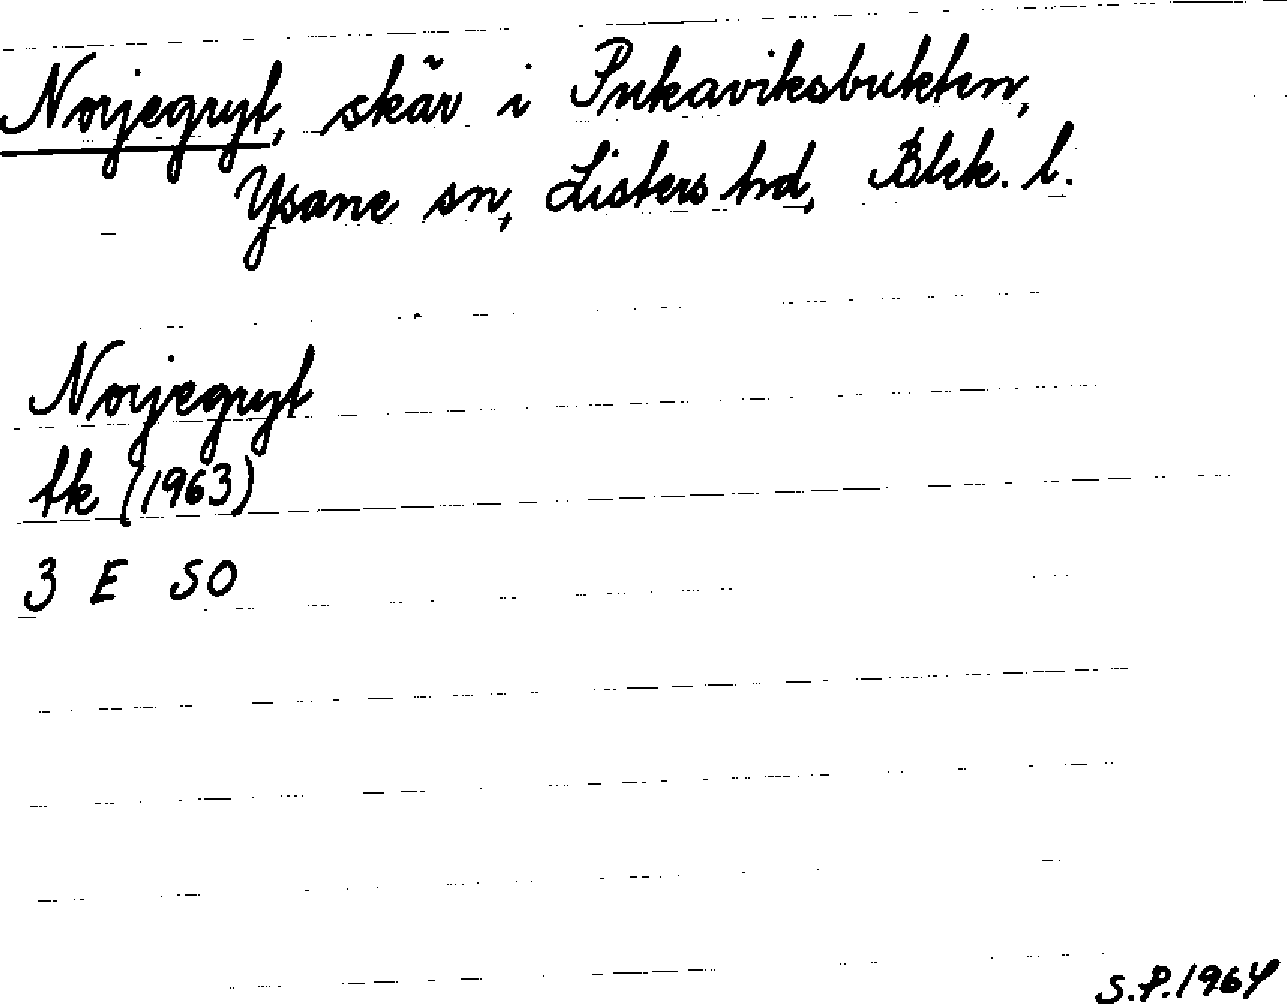 Norjegryt, skär i Pukaviksbukten,
Ysane sn, Listers hd, Blek. l.
Norjegryt
tk (1963)
3 E SO
S.P. 1964